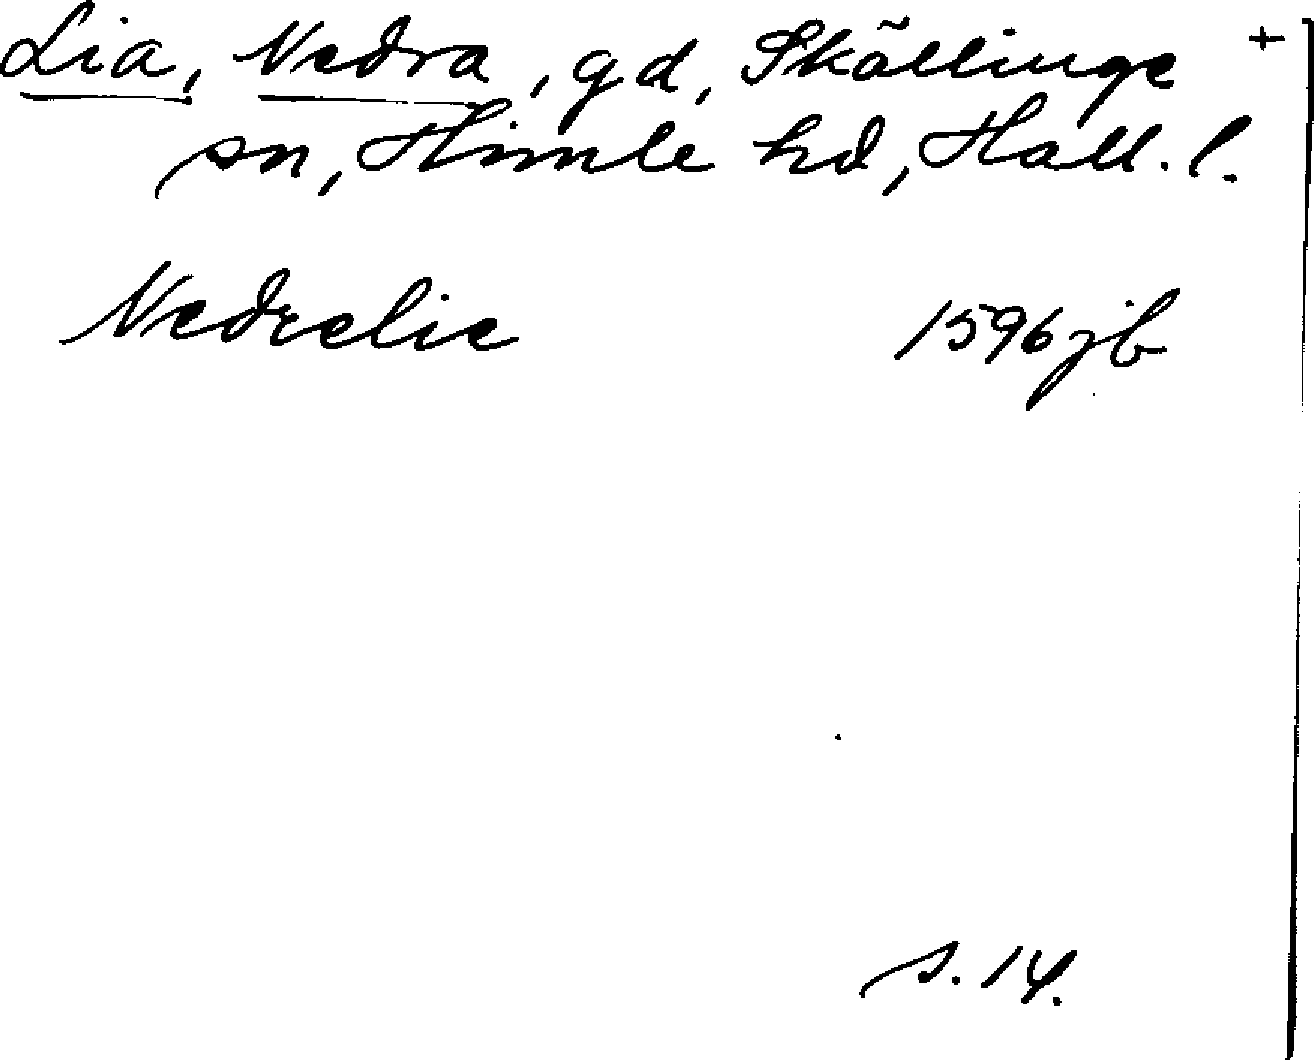 Lia, Nedra, gd, Skällinge +
sn, Himle hd, Hall. l.
Nedrelie 1596 jb
s. 14.